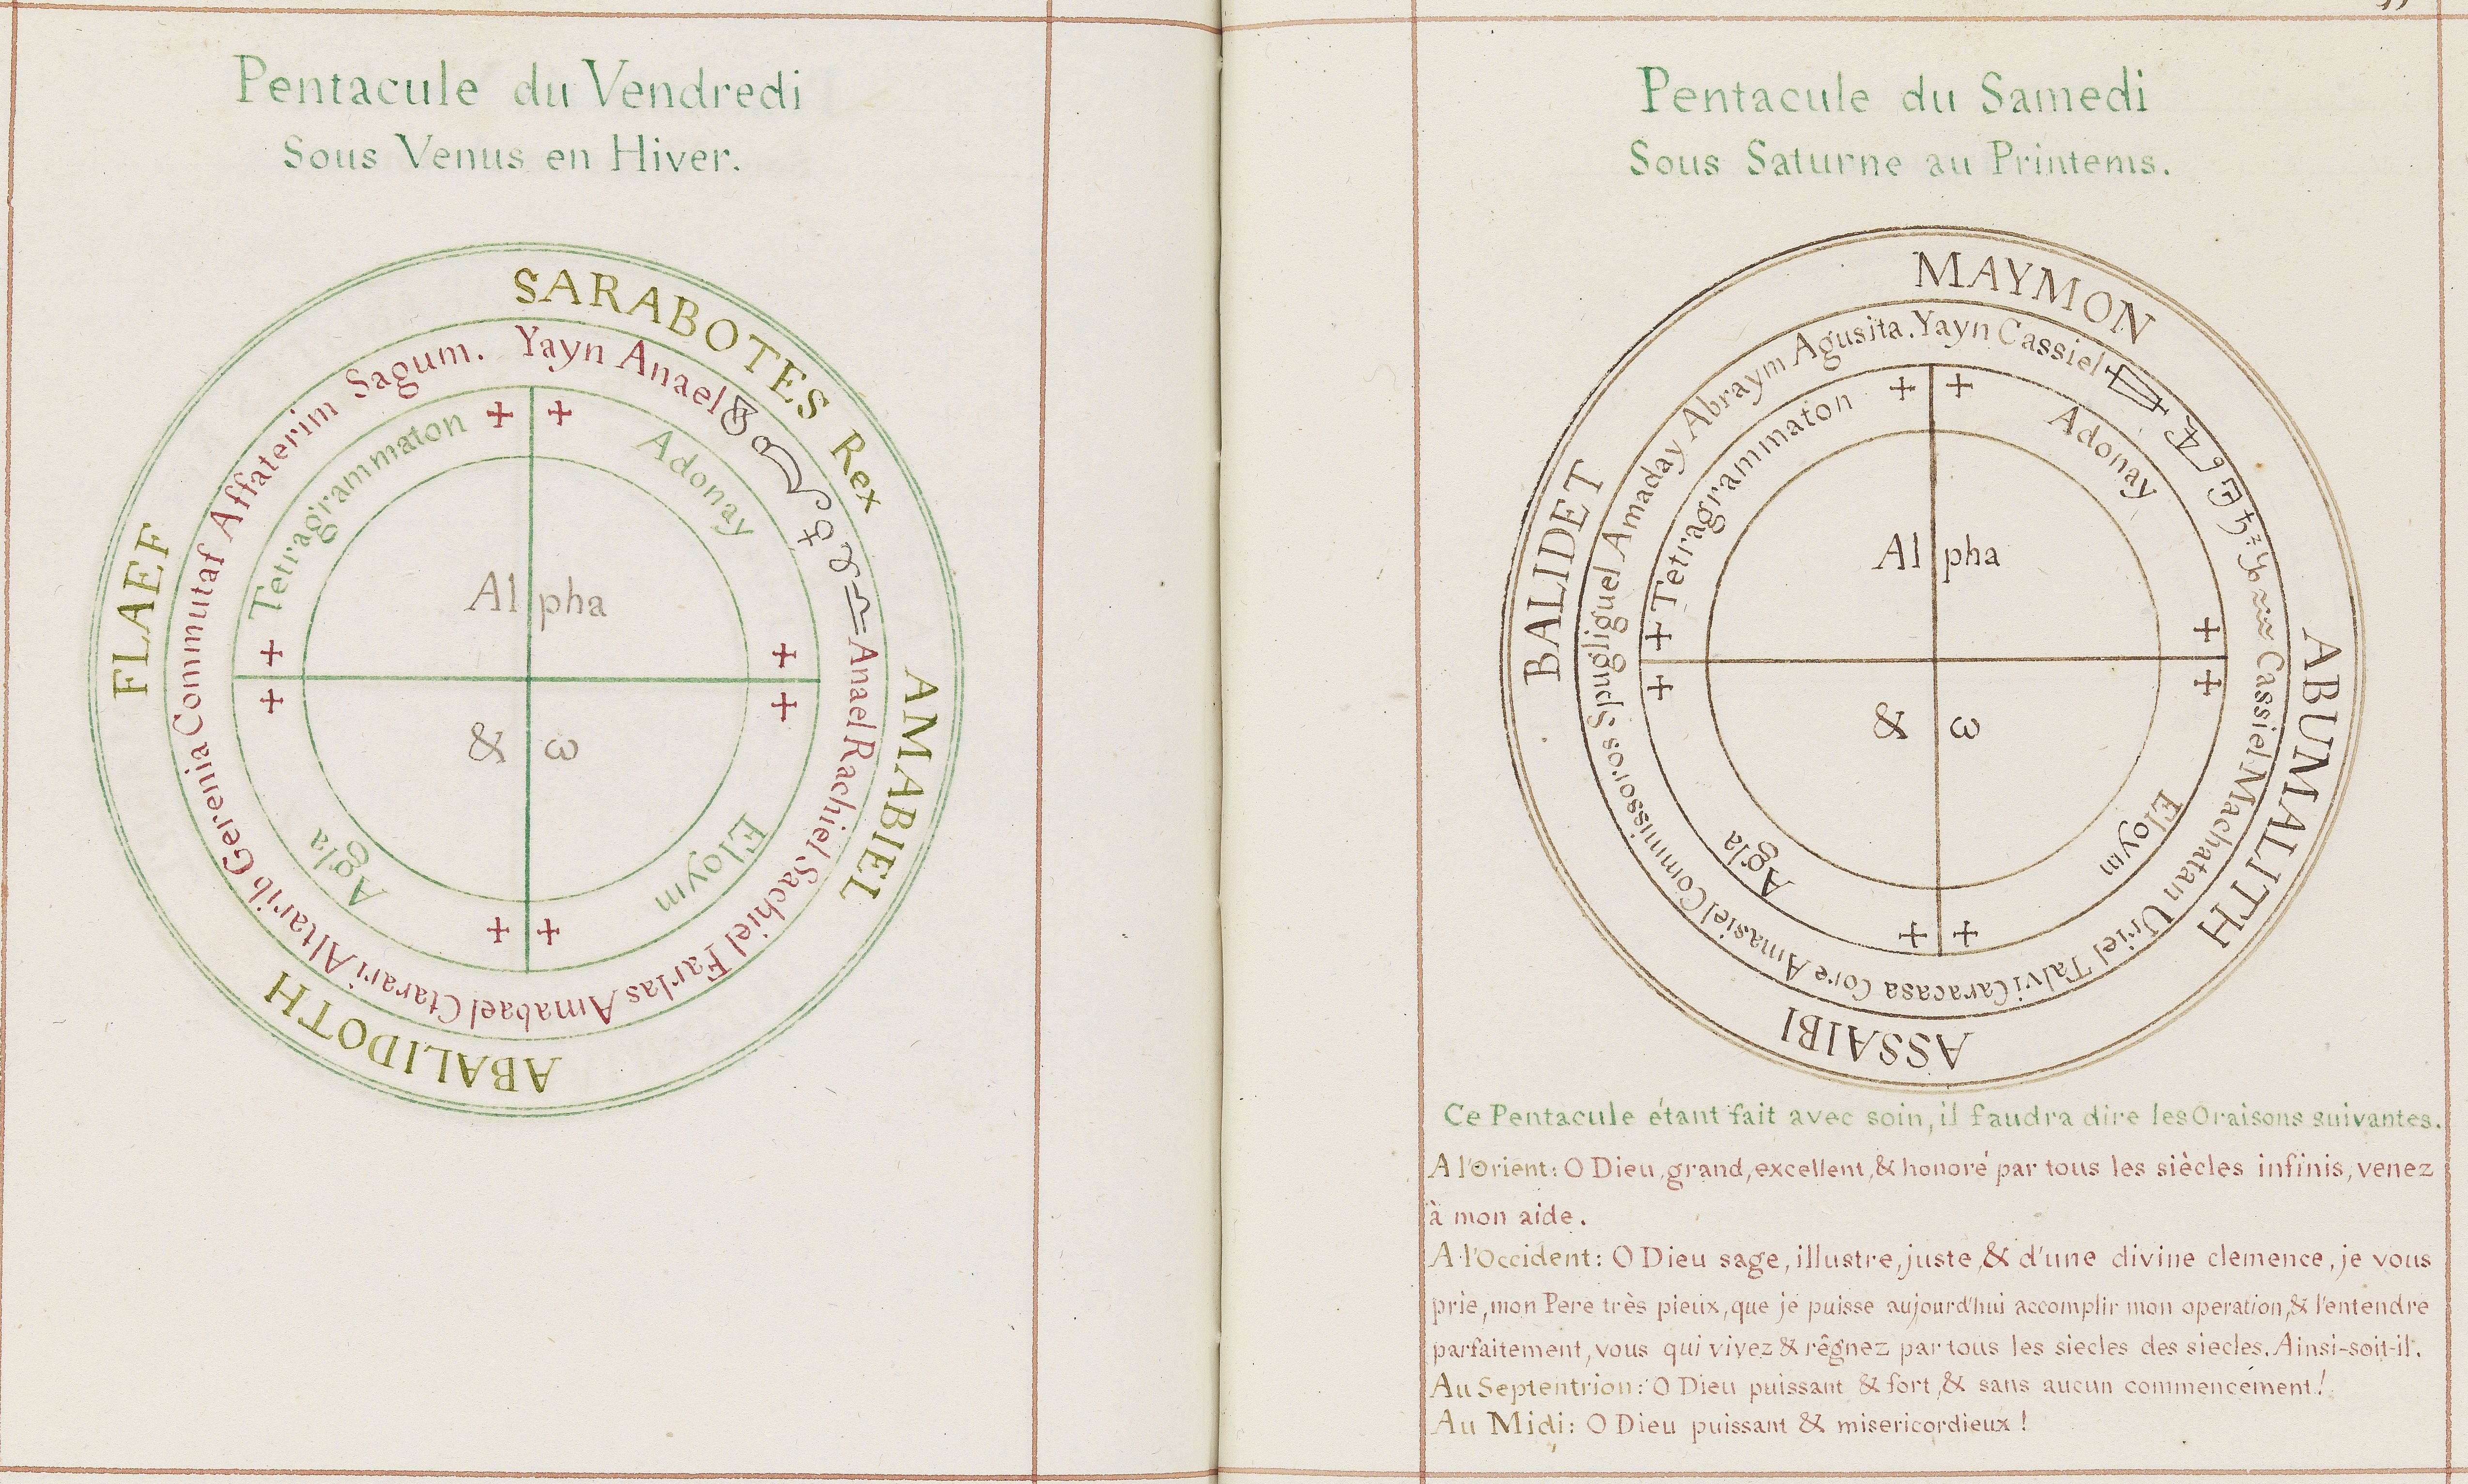 Pentacule du Vendredi
Sous Venus en Hiver.
SARABOTES Rex
AMABIEL
ABALIDOTH
FLAEF
Yayn Anael ♀ ♉ ♎ Anael Rachiel Sachiel Farlas Amabael Ctarari Altarib Gerenia Commutaf Affaterim Sagum.
+ Adonay +
+ Eloym +
+ Agla +
+ Tetragrammaton +
Alpha
& ω
Pentacule du Samedi
Sous Saturne au Printems.
MAYMON
ABUMALITH
ASSAIBI
BALIDET
Yayn Cassiel ♄ ♑ ♒ Cassiel Machatan Uriel Talvi Caracasa Core Amasiel Commissoros Spugliguel Amaday Abraym Agusita.
+ Adonay +
+ Eloym +
+ Agla +
+ Tetragrammaton +
Alpha
& ω
Ce Pentacule étant fait avec soin, il faudra dire les Oraisons suivantes.
A l'Orient: O Dieu, grand, excellent, & honoré par tous les siècles infinis, venez
à mon aide.
A l'Occident: O Dieu sage, illustre, juste, & d'une divine clemence, je vous
prie, mon Pere très pieux, que je puisse aujourd'hui accomplir mon operation, & l'entendre
parfaitement, vous qui vivez & rêgnez par tous les siecles des siecles. Ainsi-soit-il.
Au Septentrion: O Dieu puissant & fort, & sans aucun commencement!
Au Midi: O Dieu puissant & misericordieux!